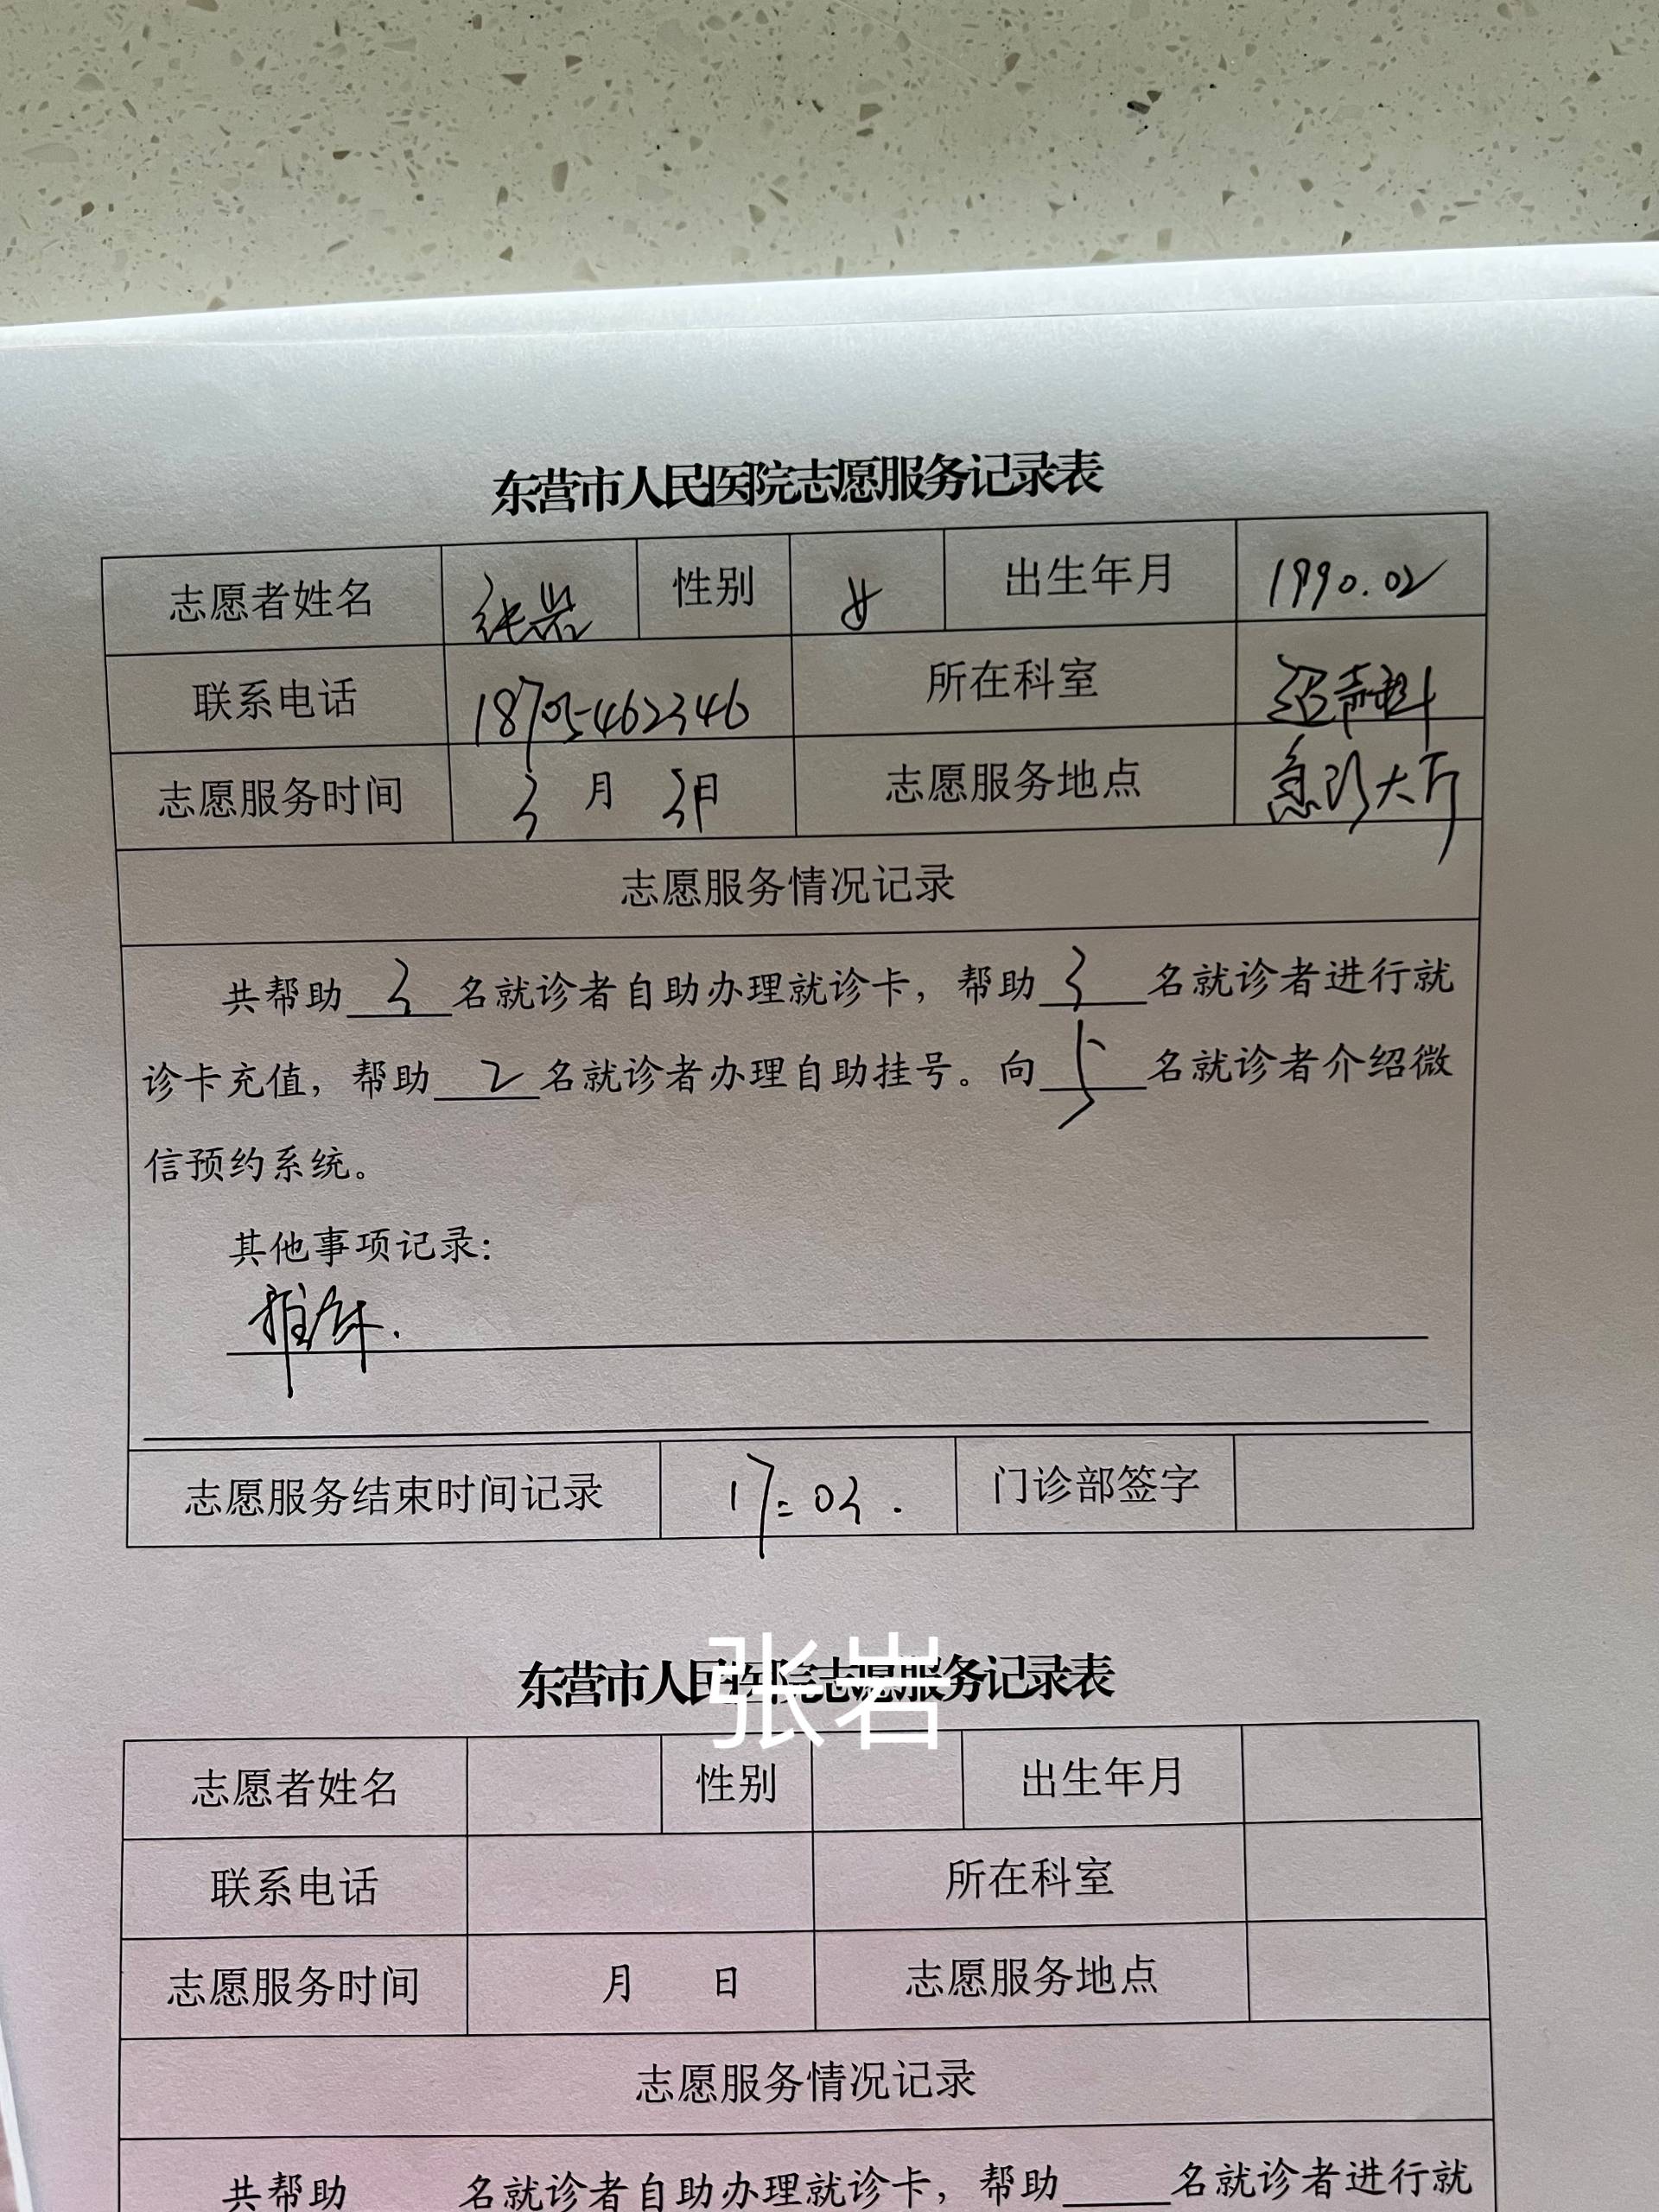 东营市人民医院志愿服务记录表
志愿者姓名 张岩 性别 女 出生年月 1990.02
联系电话 18705462346 所在科室 超声科
志愿服务时间 3月3日 志愿服务地点 急诊大厅
志愿服务情况记录
共帮助 3 名就诊者自助办理就诊卡，帮助 3 名就诊者进行就
诊卡充值，帮助 2 名就诊者办理自助挂号。向 5 名就诊者介绍微
信预约系统。
其他事项记录：
志愿服务结束时间记录 17:03. 门诊部签字
张岩
东营市人民医院志愿服务记录表
志愿者姓名 性别 出生年月
联系电话 所在科室
志愿服务时间 月 日 志愿服务地点
志愿服务情况记录
共帮助 名就诊者自助办理就诊卡，帮助 名就诊者进行就